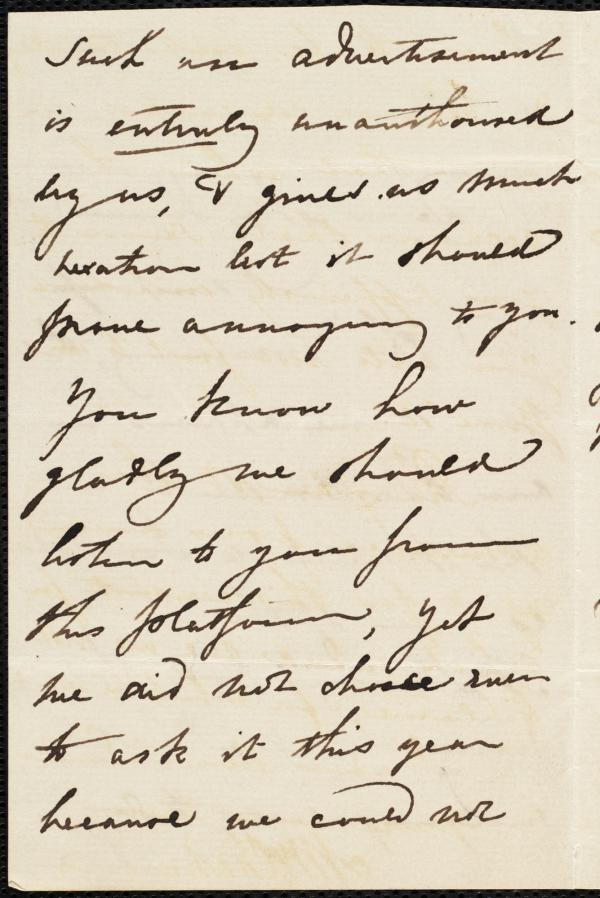 Such an advertisement
is entirely unauthorised
by us, & gives us much
vexation lest it should
prove annoying to you.
You know how
gladly we should
listen to you from
this platform, yet
we did not choose even
to ask it this year
because we could not